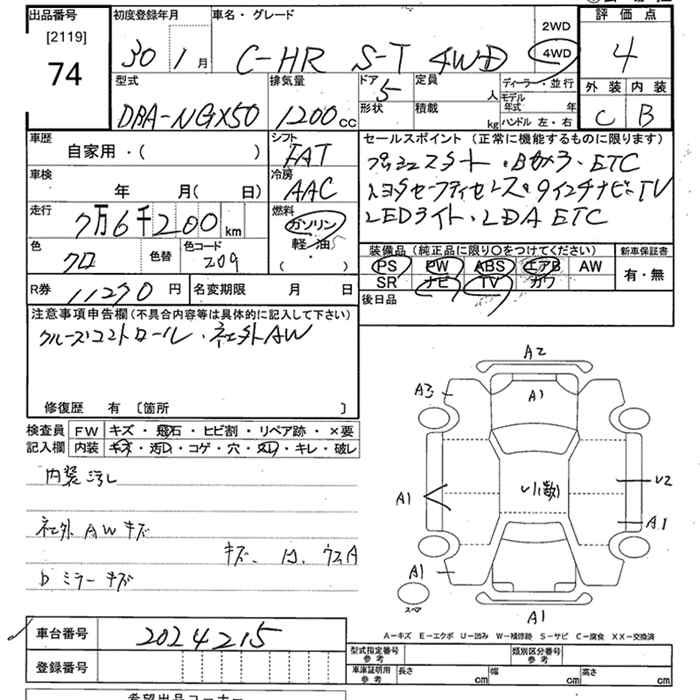 出品番号
[2119]
74
初度登録年月
30 1 月
車名・グレード
C-HR S-T 4WD
2WD
4WD
評価点
4
外装 内装
C B
型式
DBA-NGX50
排気量
1200 cc
ドア 5
形状
定員 人
積載 kg
ディーラー・並行
モデル年式 年
ハンドル 左・右
車歴
自家用・( )
シフト
FAT
車検
年 月 日
冷房
AAC
走行
7万6千200 km
燃料
ガソリン
軽・油
( )
色
クロ
色替
色コード
209
セールスポイント (正常に機能するものに限ります)
プッシュスタート・Bカメラ・ETC
トヨタセーフティセンス・9インチナビ・TV
LEDライト・LDA ETC
装備品 (純正品に限り○をつけてください)
PS PW ABS エアB AW
SR ナビ TV カワ
新車保証書
有・無
後日品
R券 11270 円
名変期限 月 日
注意事項申告欄 (不具合内容等は具体的に記入して下さい)
クルーズコントロール・社外AW
修復歴 有 〔箇所 〕
検査員記入欄
FW キズ・飛石・ヒビ割・リペア跡・×要
内装 キズ・汚れ・コゲ・穴・スレ・キレ・破レ
内装汚レ
社外AWキズ
ミラーキズ
A2
A3
A1
A1
U2
A1
A1
スペア
A1
A-キズ E-エクボ U-凹み W-補修跡 S-サビ C-腐食 XX-交換済
車台番号
2024215
登録番号
型式指定番号 参考
類別区分番号 参考
車庫証明用 参考
長さ cm
幅 cm
高さ cm
希望出品コーナー